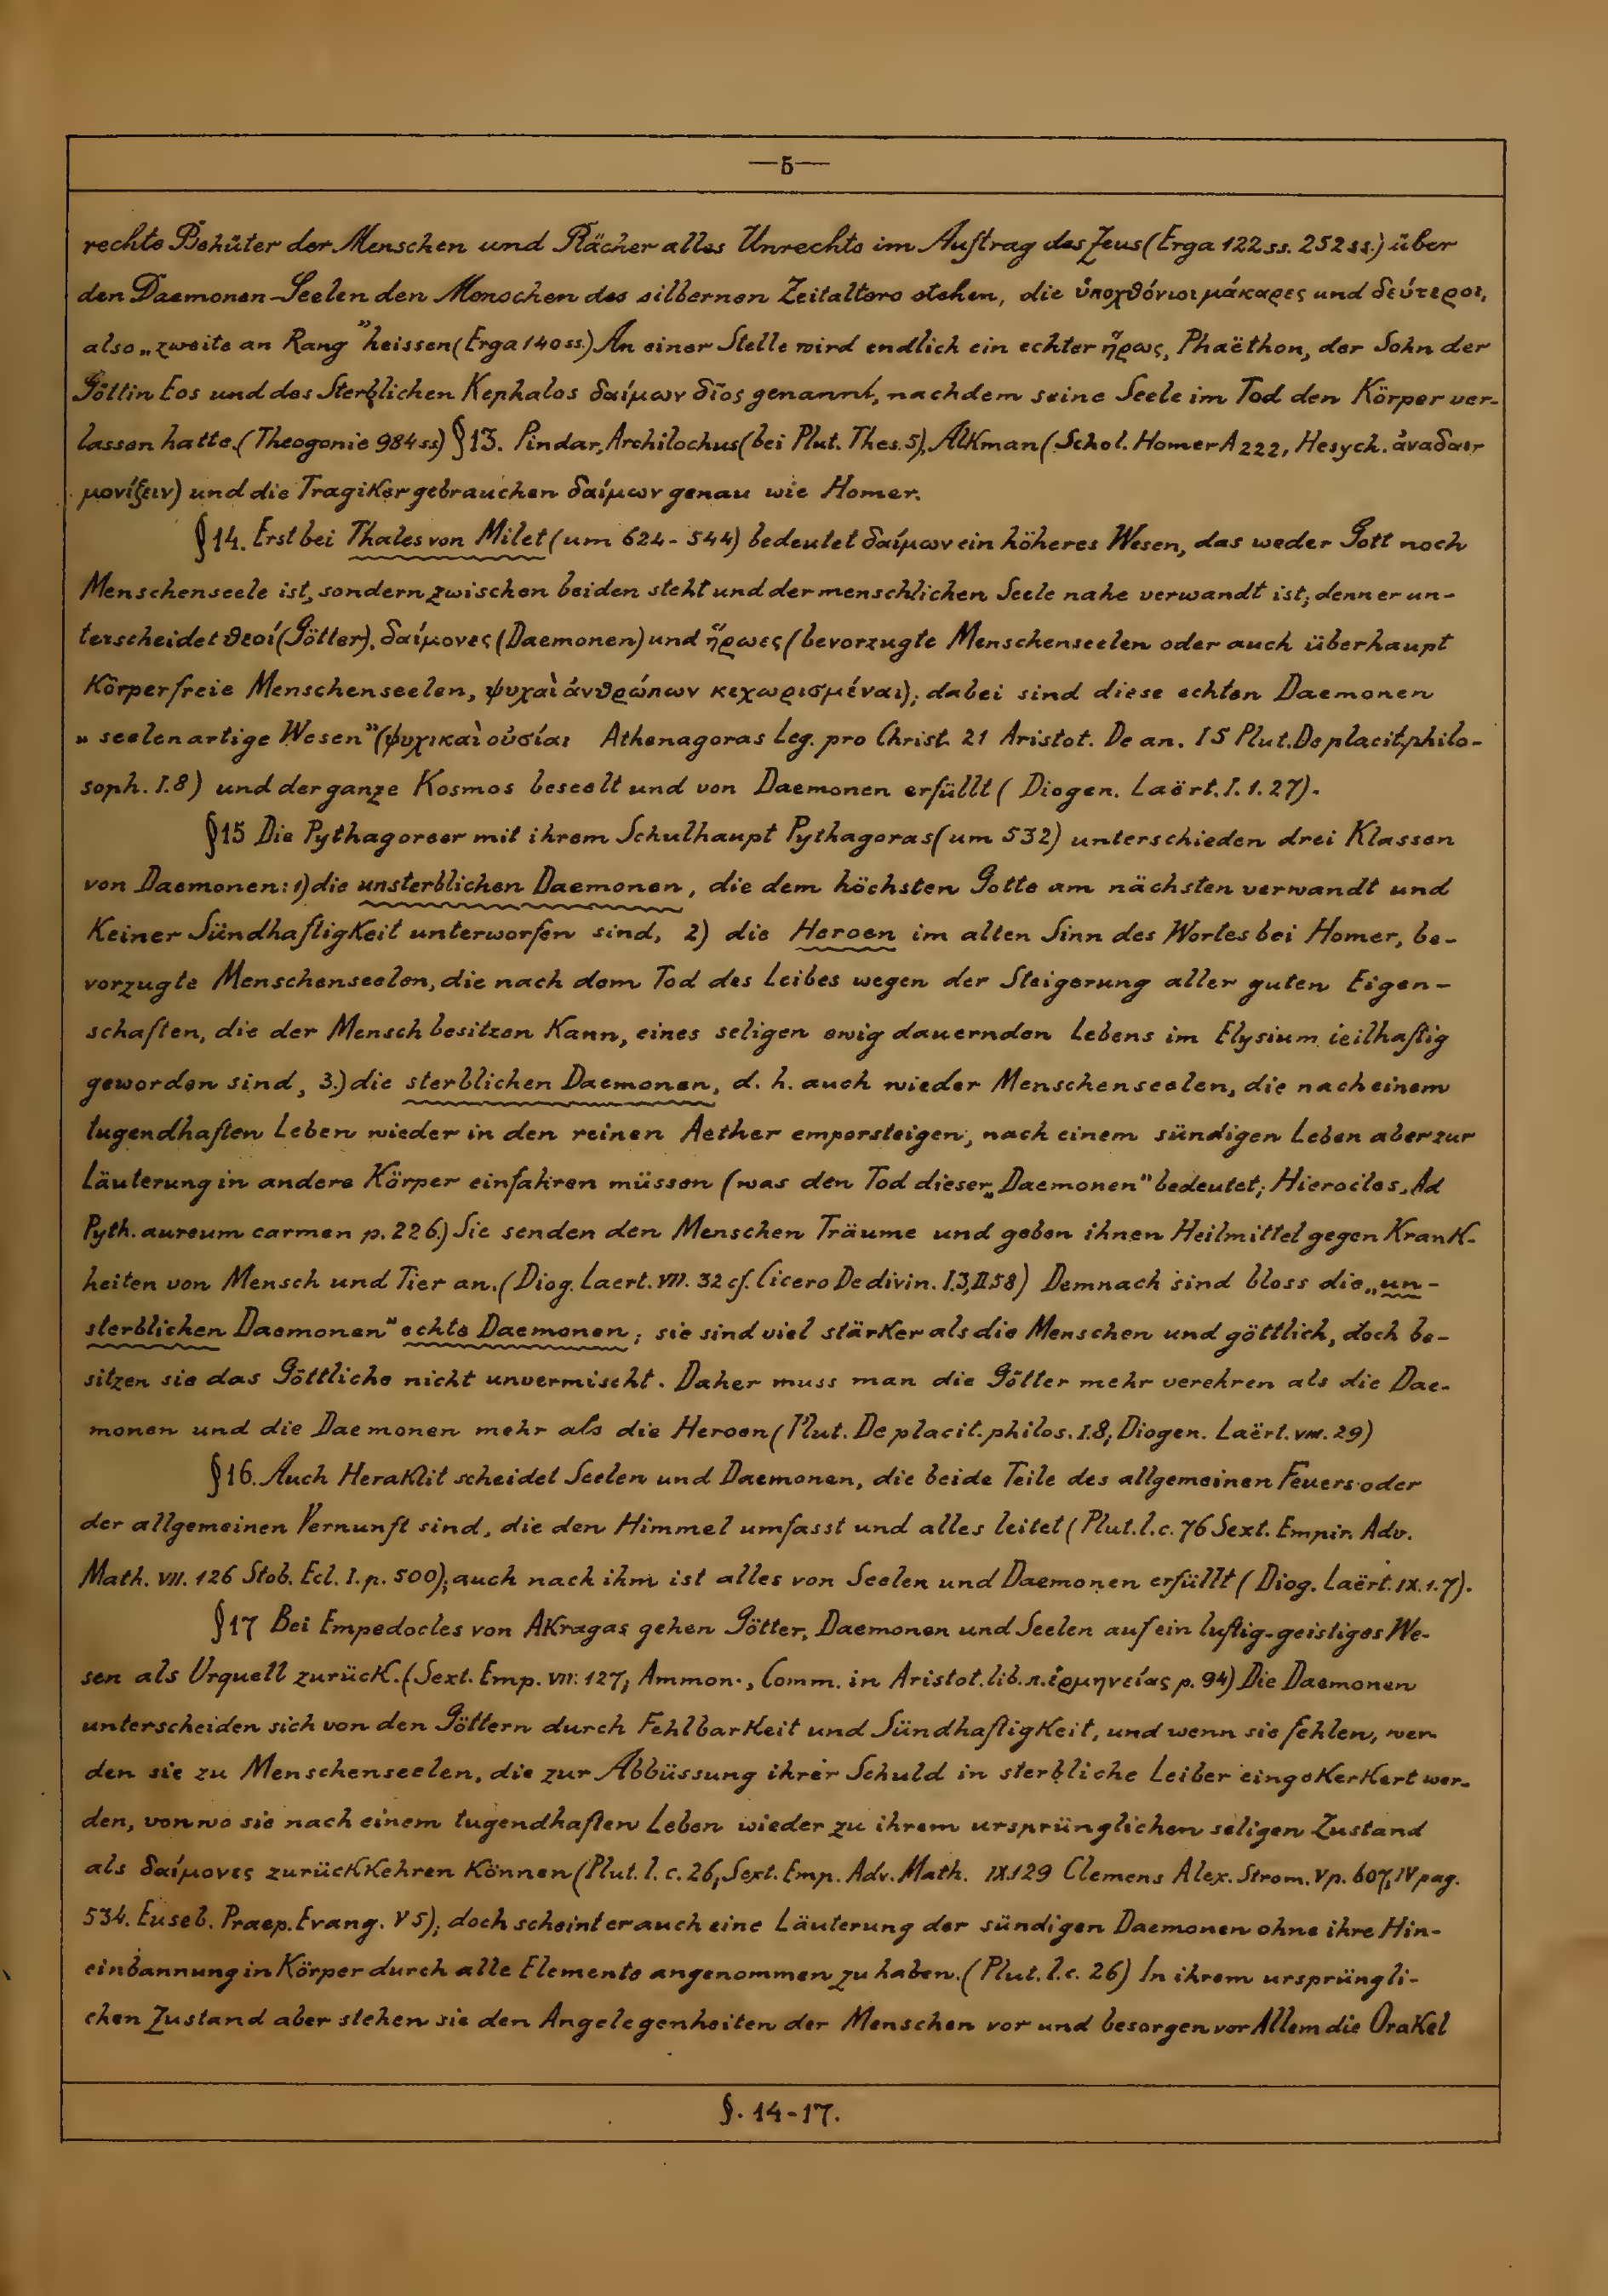 —5—
rechte Behüter der Menschen und Rächer alles Unrechts im Auftrag des Zeus (Erga 122 ss. 252 ss.) über
den Daemonen-Seelen den Menschen des silbernen Zeitalters stehen, die ὑποχθόνιοι μάκαρες und δεύτεροι,
also „zweite an Rang" heissen (Erga 140 ss.) An einer Stelle wird endlich ein echter ἥρως, Phaëthon, der Sohn der
Göttin Eos und des Sterblichen Kephalos δαίμων δῖος genannt, nachdem seine Seele im Tod den Körper ver-
lassen hatte. (Theogonie 984 ss) §13. Pindar, Archilochus (bei Plut. Thes. 5), Alkman (Schol. Homer A 222, Hesych. ἀναδαιτ
μονίζειν) und die Tragiker gebrauchen δαίμων genau wie Homer.
§14. Erst bei Thales von Milet (um 624 - 544) bedeutet δαίμων ein höheres Wesen, das weder Gott noch
Menschenseele ist, sondern zwischen beiden steht und der menschlichen Seele nahe verwandt ist; denn er un-
terscheidet θεοί (Götter), δαίμονες (Daemonen) und ἥρωες (bevorzugte Menschenseelen oder auch überhaupt
Körperfreie Menschenseelen, ψυχαὶ ἀνθρώπων κεχωρισμέναι); dabei sind diese echten Daemonen
„seelenartige Wesen" (ψυχικαὶ οὐσίαι Athenagoras Leg. pro Christ. 21 Aristot. De an. I 5 Plut. De placit. philo-
soph. I.8) und der ganze Kosmos beseelt und von Daemonen erfüllt (Diogen. Laërt. I. 1. 27).
§15 Die Pythagoreer mit ihrem Schulhaupt Pythagoras (um 532) unterschieden drei Klassen
von Daemonen: 1) die unsterblichen Daemonen, die dem höchsten Gotte am nächsten verwandt und
Keiner Sündhaftigkeit unterworfen sind, 2) die Heroen im alten Sinn des Wortes bei Homer, be-
vorzugte Menschenseelen, die nach dem Tod des Leibes wegen der Steigerung aller guten Eigen-
schaften, die der Mensch besitzen Kann, eines seligen ewig dauernden Lebens im Elysium teilhaftig
geworden sind, 3.) die sterblichen Daemonen, d. h. auch wieder Menschenseelen, die nach einem
tugendhaften Leben wieder in den reinen Aether emporsteigen, nach einem sündigen Leben aber zur
Läuterung in andere Körper einfahren müssen (was den Tod dieser „Daemonen" bedeutet; Hierocles, Ad
Pyth. aureum carmen p. 226.) Sie senden den Menschen Träume und geben ihnen Heilmittel gegen Krank-
heiten von Mensch und Tier an. (Diog. Laert. VIII. 32 cf. Cicero De divin. I.3, II.58) Demnach sind bloss die „un-
sterblichen Daemonen" echte Daemonen; sie sind viel stärker als die Menschen und göttlich, doch be-
sitzen sie das Göttliche nicht unvermischt. Daher muss man die Götter mehr verehren als die Dae-
monen und die Daemonen mehr als die Heroen (Plut. De placit. philos. I.8; Diogen. Laërt. VIII. 29)
§16. Auch Heraklit scheidet Seelen und Daemonen, die beide Teile des allgemeinen Feuers oder
der allgemeinen Vernunft sind, die den Himmel umfasst und alles leitet (Plut. l.c. 76 Sext. Empir. Adv.
Math. VII. 126 Stob. Ecl. I. p. 500); auch nach ihm ist alles von Seelen und Daemonen erfüllt (Diog. Laërt. IX. 1. 7).
§17 Bei Empedocles von Akragas gehen Götter, Daemonen und Seelen auf ein luftig-geistiges We-
sen als Urquell zurück. (Sext. Emp. VII. 127; Ammon., Comm. in Aristot. lib. π. ἑρμηνείας p. 94) Die Daemonen
unterscheiden sich von den Göttern durch Fehlbarkeit und Sündhaftigkeit, und wenn sie fehlen, wer
den sie zu Menschenseelen, die zur Abbüssung ihrer Schuld in sterbliche Leiber eingekerkert wer-
den, von wo sie nach einem tugendhaften Leben wieder zu ihrem ursprünglichen seligen Zustand
als δαίμονες zurückkehren können (Plut. l. c. 26, Sext. Emp. Adv. Math. IX.129 Clemens Alex. Strom. V p. 607, IV pag.
534. Euseb. Praep. Evang. V 5); doch scheint er auch eine Läuterung der sündigen Daemonen ohne ihre Hin-
einbannung in Körper durch alle Elemente angenommen zu haben. (Plut. l.c. 26) In ihrem ursprüngli-
chen Zustand aber stehen sie den Angelegenheiten der Menschen vor und besorgen vor Allem die Orakel
§. 14-17.